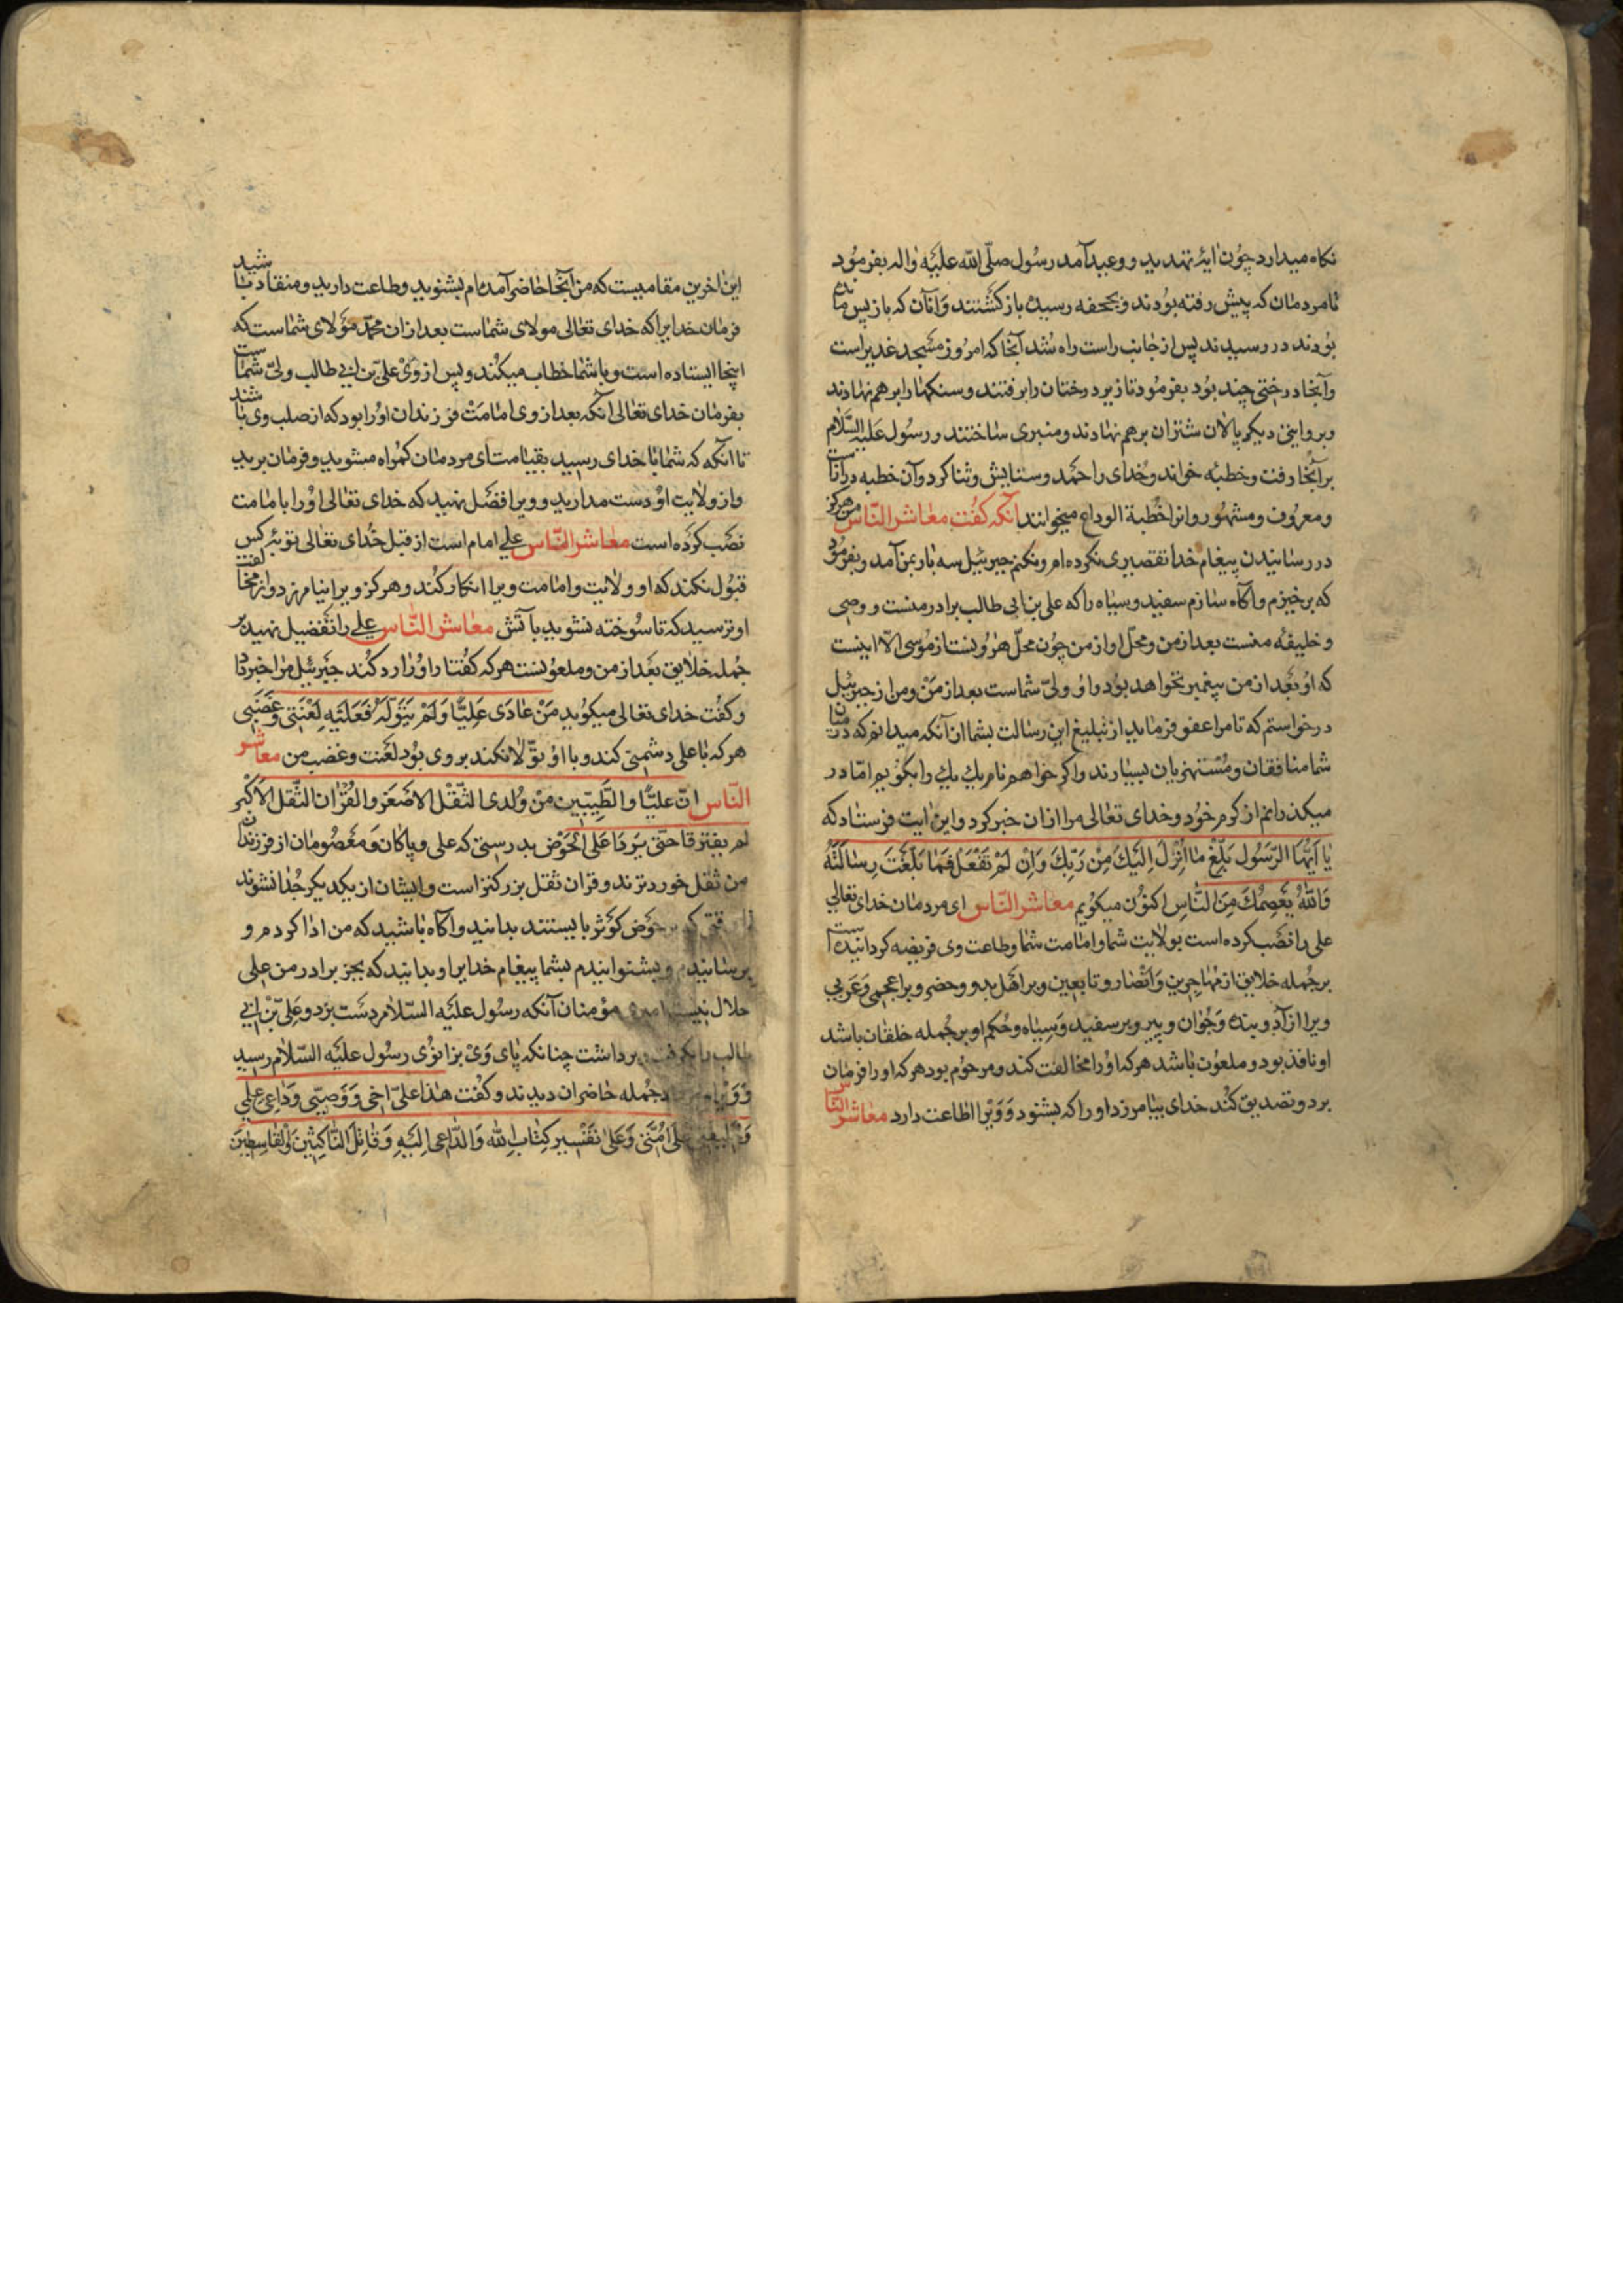 نکاه میدارد چون ایۀ تهدید و وعید آمد رسول صلّی الله علیه واله بفرمود
تا مردمان که پیش رفته بودند و بجحفه رسیده بازکشتند وانان که باز پس مانده
بودند در رسیدند پس از جانب راست راه شد آنجا که امروز مسجد غدیر است
وآنجا درختی چند بود بفرمود تا زیر درختان را برفتند و سنکها را بر هم نهادند
وبروایتی دیکر پالان شتران بر هم نهادند و منبری ساختند و رسول علیه السّلام
بر آنجا رفت و خطبه خواند و خدای را حمد و ستایش و ثنا کرد وآن خطبه درازست
ومعروف ومشهور وانرا خطبة الوداع میخوانند آنکه کفت معاشر الناس من هرکز
در رسانیدن پیغام خدا تقصیری نکرده ام و نکنم جبرئیل سه بار بمن آمد و بفرمود
که برخیزم و اکاه سازم سفید و سیاه را که علی بن ابی طالب برادر منست و وصی
و خلیفۀ منست بعد از من و محلّ او از من چون محلّ هرونست از موسی الّا اینست
که او بعد از من پیغمبر نخواهد بود و او ولیّ شماست بعد از من و من از جبرئیل
درخواستم که تا مرا عفو فرماید از تبلیغ این رسالت بشما ان آنکه میدانم که در میان
شما منافقان و مستهزیان بسیارند واکر خواهم نام یك یك را بکویم امّا در
میکذرانم از کرم خود و خدای تعالی مرا ازان خبر کرد و این ایت فرستاد که
یا ایّها الرّسول بلّغ ما انزل الیك من ربّك وان لم تفعل فما بلّغت رسالته
والله یعصمك من الناس اکنون میکویم معاشر الناس ای مردمان خدای تعالی
علی را نصب کرده است بولایت شما و امامت شما و طاعت وی فریضه کردانیده است
بر جمله خلایق از مهاجرین وانصار و تابعین و بر اهل بدو و حضر و بر اعجمی و عربی
و بر ازاد و بنده و جوان و پیر و بر سفید و سیاه و حکم او بر جمله خلقان باشد
او نافذ بود و ملعون باشد هر که او را مخالفت کند و مرحوم بود هر که او را فرمان
برد و تصدیق کند خدای بیامرزد او را که بشنود و ویرا اطاعت دارد معاشر الناس
این اخرین مقامیست که من آنجا حاضر آمده ام بشنوید و طاعت دارید و منقاد باشید
فرمان خدایرا که خدای تعالی مولای شماست بعد ازان محمّد مولای شماست که
اینجا ایستاده است و با شما خطاب میکند و پس از وی علیّ بن ابی طالب ولیّ شماست
بفرمان خدای تعالی آنکه بعد از وی امامت فرزندان او را بود که از صلب وی باشند
تا آنکه که شما با خدای رسید بقیامت ای مردمان کمراه مشوید و فرمان برید
و از ولایت او دست مدارید و ویرا فضل نهید که خدای تعالی او را بامامت
نصب کرده است معاشر الناس علی امام است از قبل خدای تعالی توبۀ کس
قبول نکند که او ولایت و امامت ویرا انکار کند و هرکز ویرا نیامرزد و از مخالفت
او ترسید که تا سوخته نشوید بآتش معاشر الناس علی را تفضیل نهید بر
جمله خلایق بعد از من و ملعونست هر که کفتار او را رد کند جبرئیل مرا خبر داد
و کفت خدای تعالی میکوید من عادی علیّا ولم یتولّه فعلیه لعنتی وغضبی
هر که با علی دشمنی کند و با او تولّا نکند بر وی بود لعنت و غضب من معاشر
الناس انّ علیّا والطیّبین من ولدی الثّقل الاصغر والقران الثّقل الاکبر
لم یفترقا حتّی یردا علی الحوض بدرستی که علی و پاکان و معصومان از فرزندان
من ثقل خوردترند و قران ثقل بزرکتر است و ایشان از یکدیکر جدا نشوند
حوض کوثر بایستند بدانید و اکاه باشید که من ادا کردم و
برسانیدم و بشنوانیدم بشما پیغام خدایرا و بدانید که بجز برادر من علی
حلال نیست مؤمنان آنکه رسول علیه السّلام دست برد و علیّ بن ابی
طالب را برداشت چنانکه پای وی بزانوی رسول علیه السّلام رسید
جمله حاضران دیدند و کفت هذا علیّ اخی ووصیّی وداعی علمی
علی امّتی وعلی تفسیر کتاب الله والدّاعی الیه وقاتل النّاکثین والقاسطین